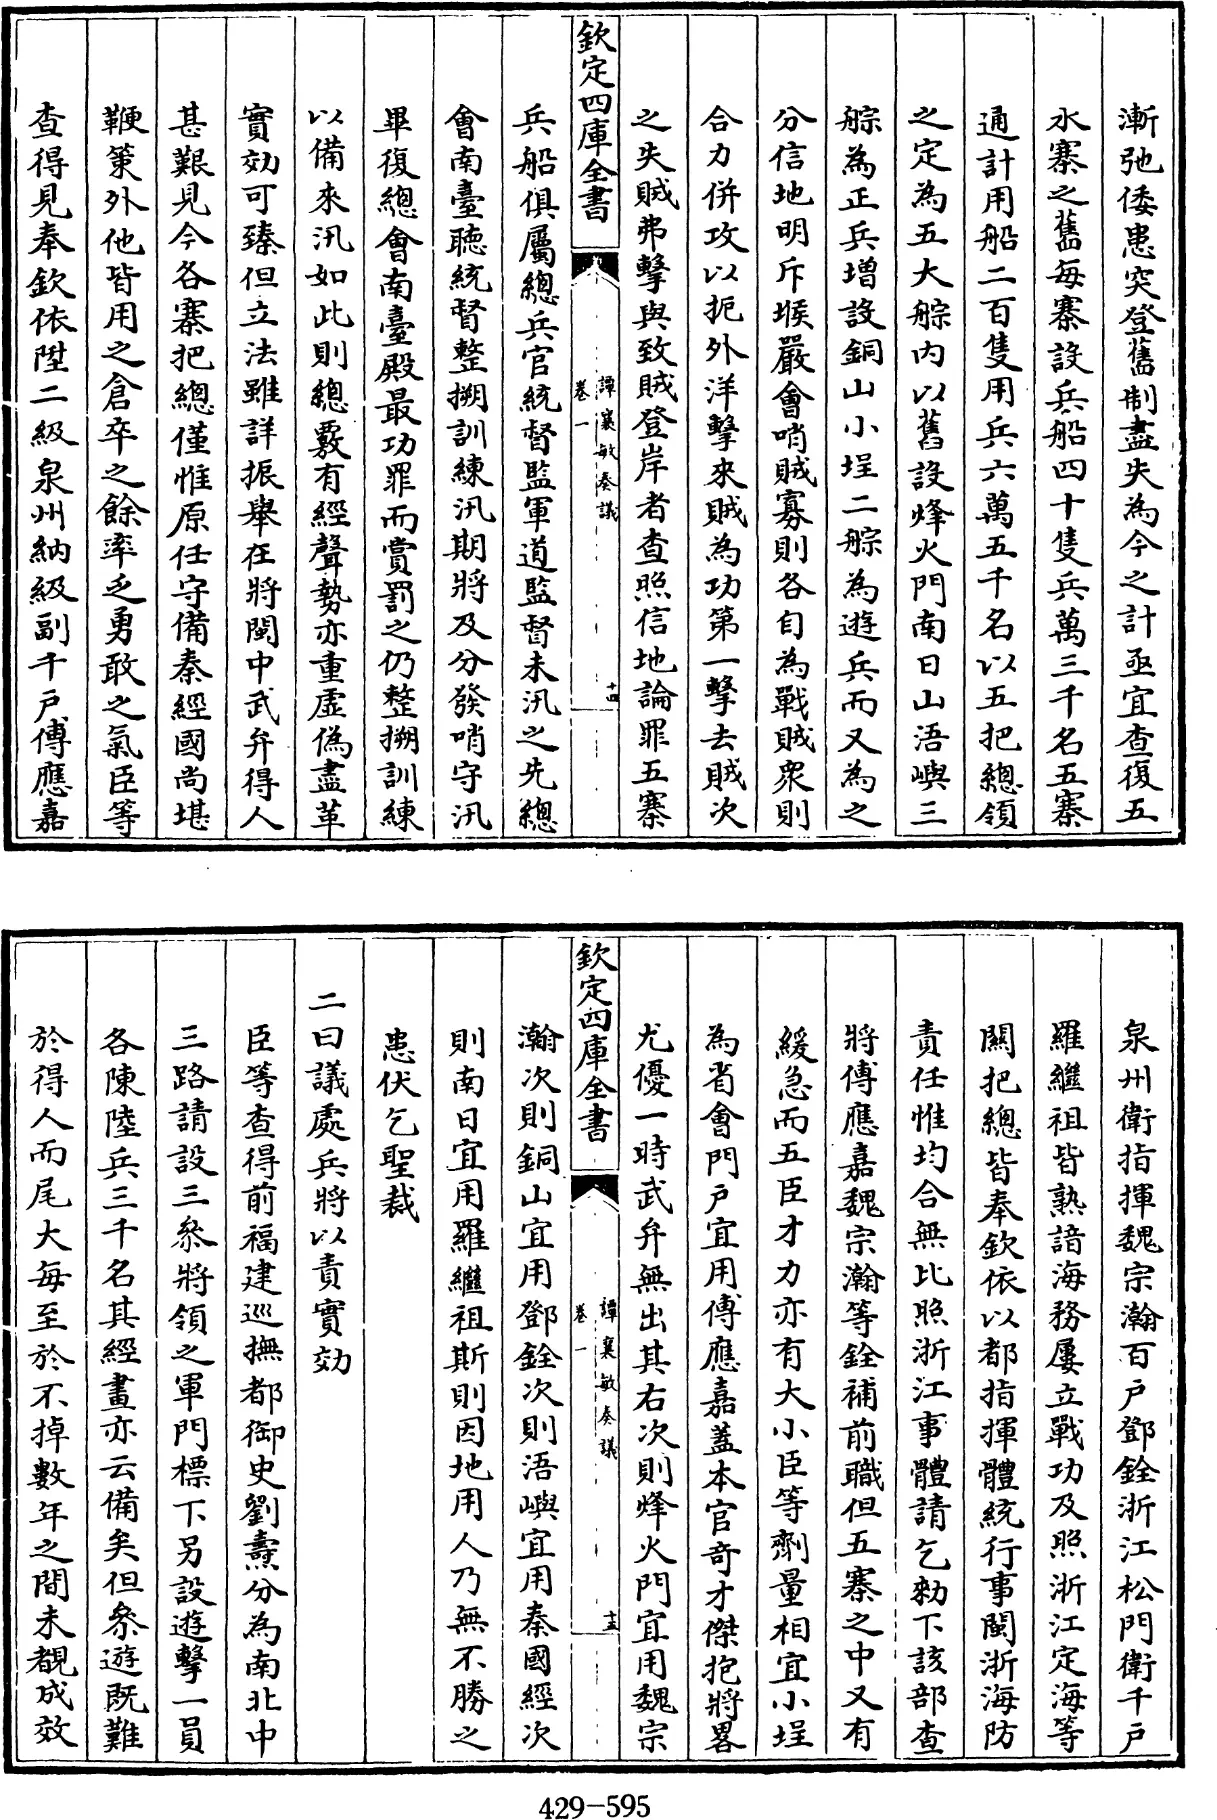 漸弛倭患突登舊制盡失為今之計亟宜查復五
水寨之舊每寨設兵船四十隻兵萬三千名五寨
通計用船二百隻用兵六萬五千名以五把總領
之定為五大䑸内以舊設烽火門南日山浯嶼三
䑸為正兵增設銅山小埕二䑸為遊兵而又為之
分信地明斥堠嚴會哨賊寡則各自為戰賊衆則
合力併攻以扼外洋擊來賊為功第一擊去賊次
之失賊弗擊與致賊登岸者查照信地論罪五寨
欽定四庫全書
譚襄敏奏議
卷一
十四
兵船俱屬總兵官統督監軍道監督未汛之先總
會南臺聽統督整搠訓練汛期將及分發哨守汛
畢復總會南臺殿最功罪而賞罰之仍整搠訓練
以備來汛如此則總覈有經聲勢亦重虛偽盡革
實効可臻但立法雖詳振舉在將閩中武弁得人
甚艱見今各寨把總僅惟原任守備秦經國尚堪
鞭策外他皆用之倉卒之餘率乏勇敢之氣臣等
查得見奉欽依陞二級泉州納級副千戶傅應嘉
泉州衛指揮魏宗瀚百戶鄧銓浙江松門衛千戶
羅繼祖皆熟諳海務屢立戰功及照浙江定海等
關把總皆奉欽依以都指揮體統行事閩浙海防
責任惟均合無比照浙江事體請乞勑下該部查
將傅應嘉魏宗瀚等銓補前職但五寨之中又有
緩急而五臣才力亦有大小臣等劑量相宜小埕
為省會門戶宜用傅應嘉蓋本官奇才傑抱將畧
尤優一時武弁無出其右次則烽火門宜用魏宗
欽定四庫全書
譚襄敏奏議
卷一
十五
瀚次則銅山宜用鄧銓次則浯嶼宜用秦國經次
則南日宜用羅繼祖斯則因地用人乃無不勝之
患伏乞聖裁
二曰議處兵將以責實効
臣等查得前福建巡撫都御史劉燾分為南北中
三路請設三叅將領之軍門標下另設遊擊一員
各陳陸兵三千名其經畫亦云備矣但叅遊既難
於得人而尾大每至於不掉數年之間未覩成效
429-595